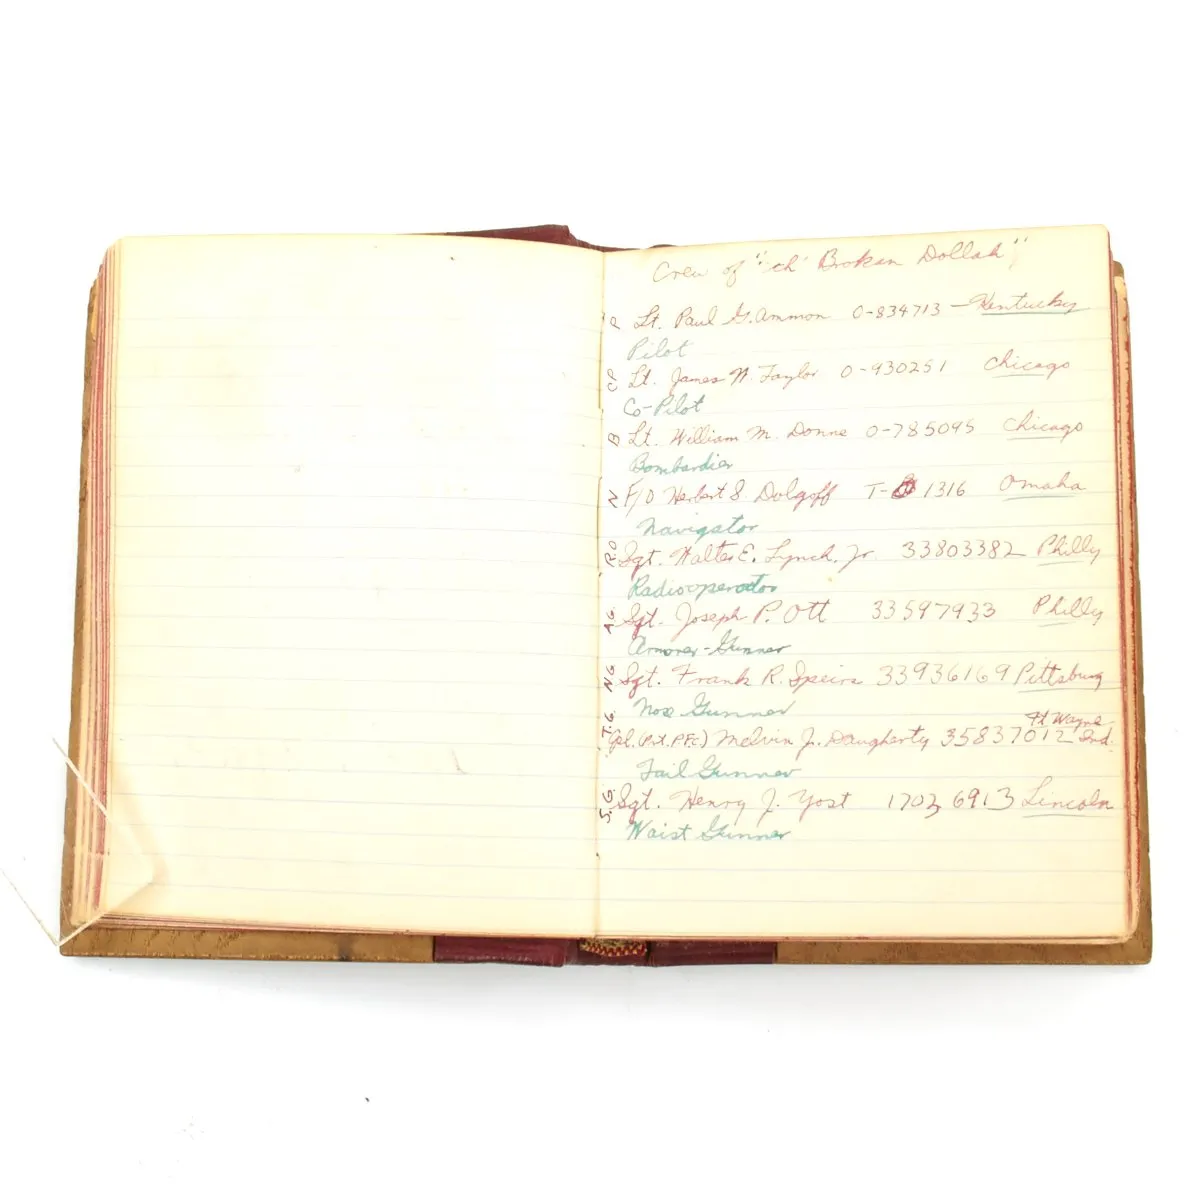 Crew of "'ch' Broken Dollah"
P Lt. Paul G. Ammon 0-834713 - Kentucky
Pilot
CP Lt. James W. Taylor 0-930251 Chicago
Co-Pilot
B Lt. William M. Donne 0-785095 Chicago
Bombardier
N F/O Herbert S. Dolgoff T- 1316 Omaha
Navigator
R.O Sgt. Walter E. Lynch, Jr. 33803382 Philly
Radiooperator
A.G. Sgt. Joseph P. Ott 33597933 Philly
Armorer-Gunner
N.G. Sgt. Frank R. Speirs 33936169 Pittsburg
Nose Gunner
Ft Wayne
T.G. Cpl. (Pvt, PFC) Melvin J. Daugherty 35837012 Ind.
Tail Gunner
S.G. Sgt. Henry J. Yost 17026913 Lincoln
Waist Gunner